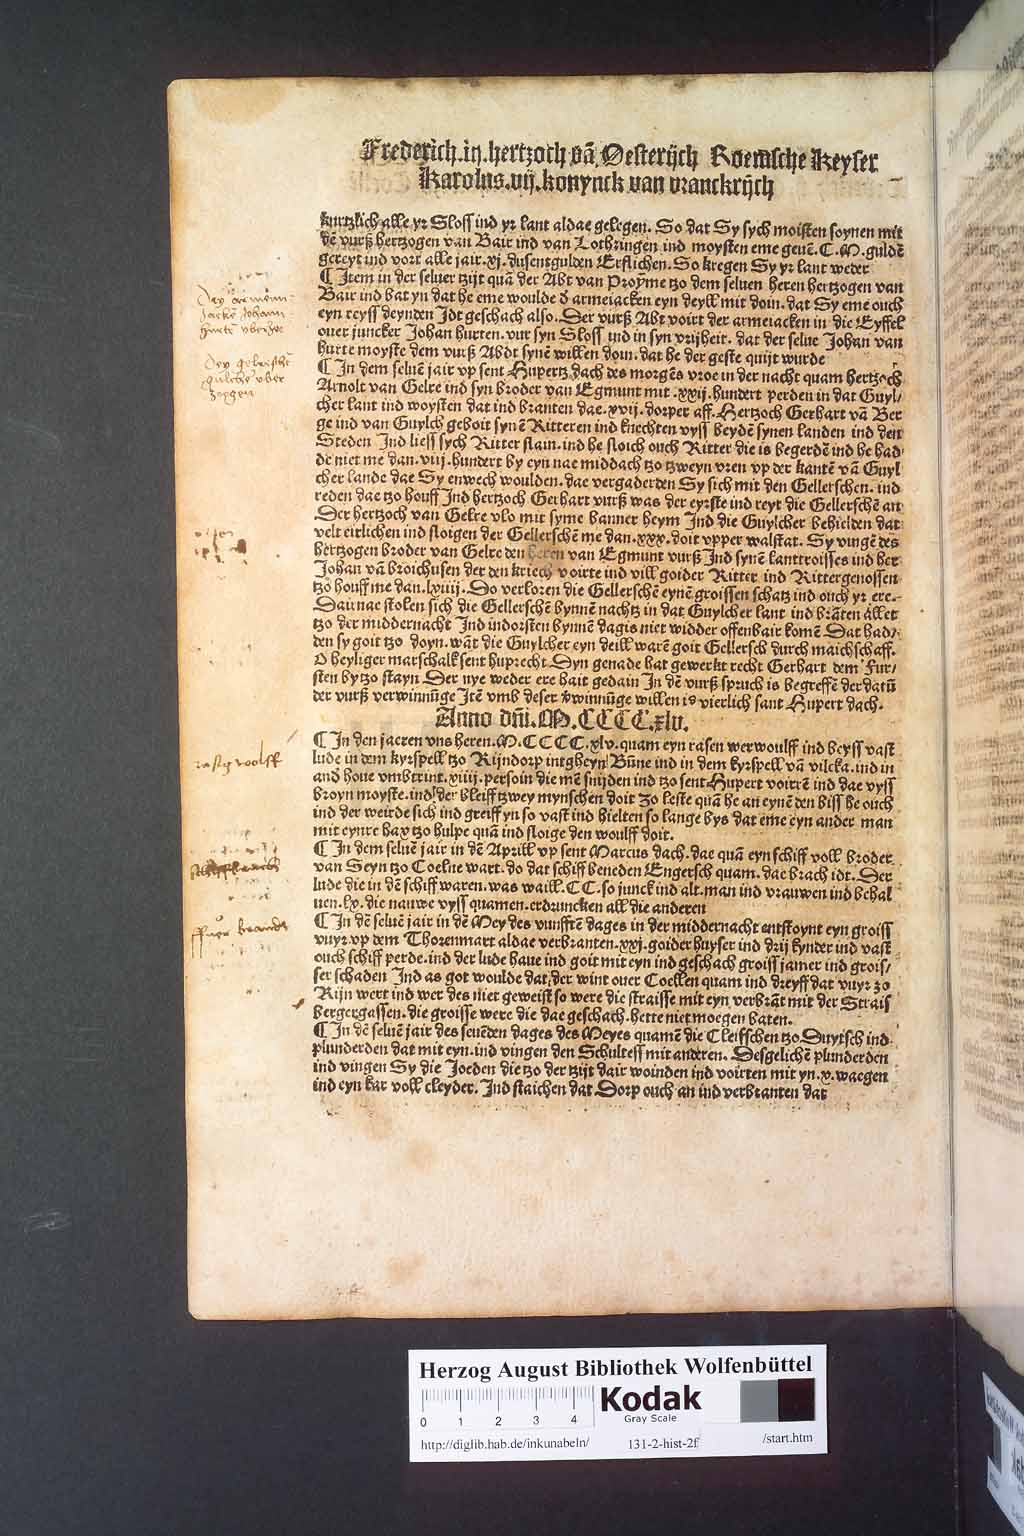 Frederich.iij.hertzoch vā Oesterijch Roemsche Keyser
Karolus.vij.konynck van vranckrijch
kurtzlich alle yr Sloss ind yr lant aldae gelegen. So dat Sy sych moisten soynen mit
dē vurß hertzogen van Bair ind van Lothringen ind moysten eme geuē. C.M.guldē
gereyt ind vort alle jair.xj.dusentgulden Erflichen. So kregen Sy yr lant weder
¶ Item in der seluer tzijt quā der Abt van Proyme tzo dem seluen heren hertzogen van
Bair ind bat yn dat he eme woulde d̕ armeiacken eyn deyll mit doin. dat Sy eme ouch
eyn reyss deynden Idt geschach also. Der vurß Abt voirt der armeiacken in die Eyffel
ouer juncker Johan hurten. vur syn Sloss ind in syn vrijheit. dat der selue Johan van
hurte moyste dem vurß Abdt synē willen doin. dat he der geste quijt wurde
¶ In dem seluē jair vp sent Hupertz dach des morgēs vroe in der nacht quam hertzoch
Arnolt van Gelre ind syn broder van Egmunt mit .xxij.hundert perden in dat Guyl/
cher lant ind woysten dat ind branten dae.xvij.dorper aff. Hertzoch Gerhart vā Ber
ge ind van Guylch geboit synē Ritteren ind knechten vyss beydē synen landen ind den
Steden Ind liess sych Ritter slain. ind he sloich ouch Ritter die is begerdē ind he had
de niet me dan.viij.hundert by eyn nae middach tzo tzweyn vren vp der kantē vā Guyl
cher lande dae Sy enwech woulden. dae vergaderden Sy sich mit den Gellerschen. ind
reden dae tzo houff Ind hertzoch Gerhart vurß was der eyrste ind reyt die Gellerschē an
Der hertzoch van Gelre vlo mit syme banner heym Ind die Guylcher behielden dat
velt eirlichen ind sloigen der Gellerschē me dan.xxx.doit vpper walstat. Sy vingē des
hertzogen broder van Gelre den heren van Egmunt vurß Ind synē lanttroisses ind her
Johan vā broichusen der den kriech voirte ind vill goider Ritter ind Rittergenossen
tzo houff me dan.lxiiij. Do verloren die Gellerschē eynē groissen schatz ind ouch yr ere.
Dair nae stolen sich die Gellerschē bynnē nachtz in dat Guylcher lant ind brāten allet
tzo der middernacht Ind indorsten bynnē dagis niet widder offenbair komē Dat had/
den sy goit tzo doyn. wāt die Guylcher eyn deill warē goit Gellersch durch maichschaff.
O heyliger marschalk sent huprecht Dyn genade hat gewerkt recht Gerhart dem Fur/
sten bytzo stayn Der nye weder ere hait gedain In dē vurß spruch is begreffē der datū
der vurß verwinnūge Itē vmb deser v̕winnūge willen is vierlich sant Hupert dach.
Anno dn̄i.M.CCCC.xlv.
¶ In den jaeren vns heren.M.CCCC.xlv.quam eyn rasen werwoulff ind beyss vast
lude in dem kyrspell tzo Rijndorp intgheyn Būne ind in dem kyrspell vā vilcka.ind in
and houe vmbtrint.xiiij.persoin die mē snijden ind tzo sent Hupert voirrē ind dae vyss
broyn moyste.ind der bleiff tzwey mynschen doit Zo leste quā he an eynē den biss he ouch
ind der weirde sich ind greiff yn so vast ind hielten so lange bys dat eme eyn ander man
mit eynre bax tzo hulpe quā ind sloige den woulff doit.
¶ In dem seluē jair in dē Aprill vp sent Marcus dach.dae quā eyn schiff voll broder
van Seyn tzo Coelne wart.do dat schiff beneden Engersch quam.dae brach idt.Der
lude die in dē schiff waren.was waill.CC.so junck ind alt.man ind vrauwen ind behal
uen.lx.die nauwe vyss quamen.erdruncken all die anderen
¶ In dē seluē jair in dē Mey des vunfftē dages in der middernacht entstoynt eyn groiss
vuyr vp dem Thorenmart aldae verbranten.xxj.goider huyser ind drij hynder ind vast
ouch schiff perde.ind der lude haue ind goit mit eyn ind geschach groiss jamer ind grois/
ser schaden Ind as got woulde dat der wint ouer Coellen quam ind dreyff dat vuyr zo
Rijn wert ind wer des niet geweist so were die straisse mit eyn verbrāt mit der Strais
bergergassen.die groisse were die dae geschach.hette niet moegen baten.
¶ In dē seluē jair des seuēden dages des Meyes quamē die Cleiffschen tzo Duytsch ind
plunderden dat mit eyn.ind vingen den Schultess mit anderen. Desgelichē plunderden
ind vingen Sy die Joeden die tzo der tzijt dair woinden ind voirten mit yn.x.waegen
ind eyn kar voll cleyder. Ind staichen dat Dorp ouch an ind verbranten dat
rasig woolff
Herzog August Bibliothek Wolfenbüttel
0 1 2 3 4
Kodak
Gray Scale
http://diglib.hab.de/inkunabeln/ 131-2-hist-2f /start.htm